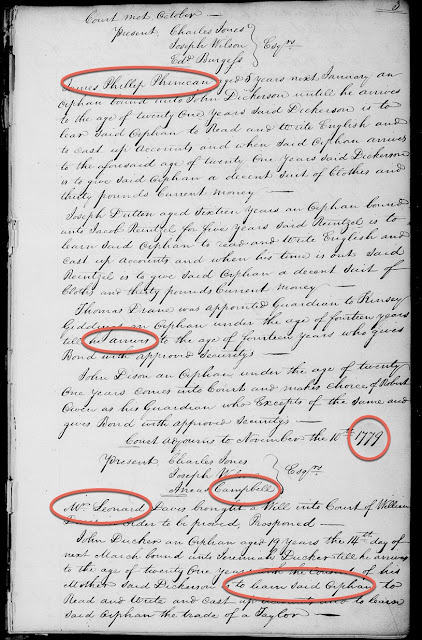 3
Court met October —
Present Charles Jones
Joseph Wilson
Edd Burgess
Esqrs
James Phillip Phinican aged 5 years next January an
Orphan bound unto John Dickerson untill he arrives
to the age of twenty One Years Said Dickerson is to
lear Said Orphan to Read and Write English and
to cast up Accounts and when Said Orphan arrives
to the aforesaid age of twenty One Years Said Dickerson
is to give Said Orphan a decent Suit of Clothes and
thirty pounds Current Money —
Joseph Dutton aged Sixteen Years an Orphan bound
unto Jacob Reintzel for five Years Said Reintzel is to
learn Said Orphan to read and Write English and
cast up Accounts and when his time is out Said
Reintzel is to give Said Orphan a decent Suit of
Cloths and thirty pounds Current Money —
Thomas Drane was appointed Guardian to
Giddings an Orphan under the age of fourteen Years
till he arives to the age of fourteen Years who gives
Bond with approved Security —
John Dison an Orphan under the age of twenty
One Years Comes into Court and makes choice of Robert
Owen as his Guardian who Excepts of the Same and
gives Bond with approved Security —
Court adjourns to November the 10th 1779
Present Charles Jones
Joseph Wilson
Aneas Campbell
Esqrs
Mrs Leonard Davis brought a Will into Court of William
Order to be proved, Posponed —
John Ducker an Orphan aged 19 Years the 14th day of
next March bound unto Jeremiah Ducker till he arrives
to the age of twenty One Years with the Consent of his
Mother Said Dickerson is to learn Said Orphan to
Read and Write and Cast up Accounts and to learn
Said Orphan the trade of a Taylor —